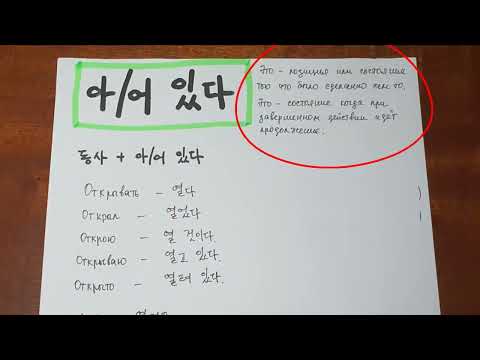 아/어 있다
Это - позиция или состояние
того что было сделанно кем то.
Это - состояние когда при
завершенном действии идёт
продолжение.
동사 + 아/어 있다
Открывать - 열다
Открыл - 열었다
Открою - 열 것이다.
Открываю - 열고 있다.
Открыто - 열려 있다.